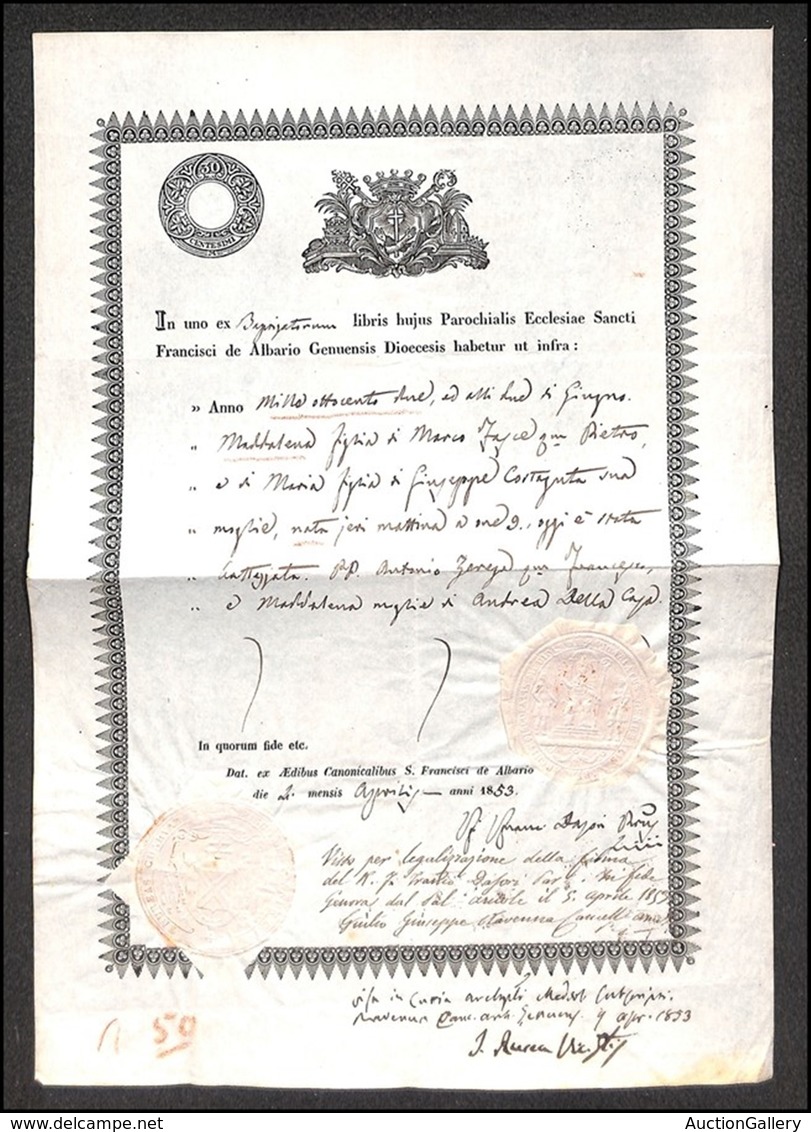 50
CENTESIMI
In uno ex Baptizatorum libris hujus Parochialis Ecclesiae Sancti
Francisci de Albario Genuensis Dioecesis habetur ut infra:
» Anno Mille ottocento due, ed alli due di Giugno.
» Maddalena figlia di Marco Fasce qm Pietro,
» e di Maria figlia di Giuseppe Costaguta sua
» moglie, nata jeri mattina a ore 9., oggi è stata
» battezzata. PP. Antonio Zerega qm Francesco,
» e Maddalena moglie di Andrea Della Casa.
In quorum fide etc.
Dat. ex Ædibus Canonicalibus S. Francisci de Albario
die 2. mensis Aprilis anni 1853.
Visto per legalizzazione della firma
del R. In fede
Genova dal 5. aprile 1853
Giulio Giuseppe Ravenna
visa in Curia
Ravenna 9 apr. 1853
50
AuctionGallery